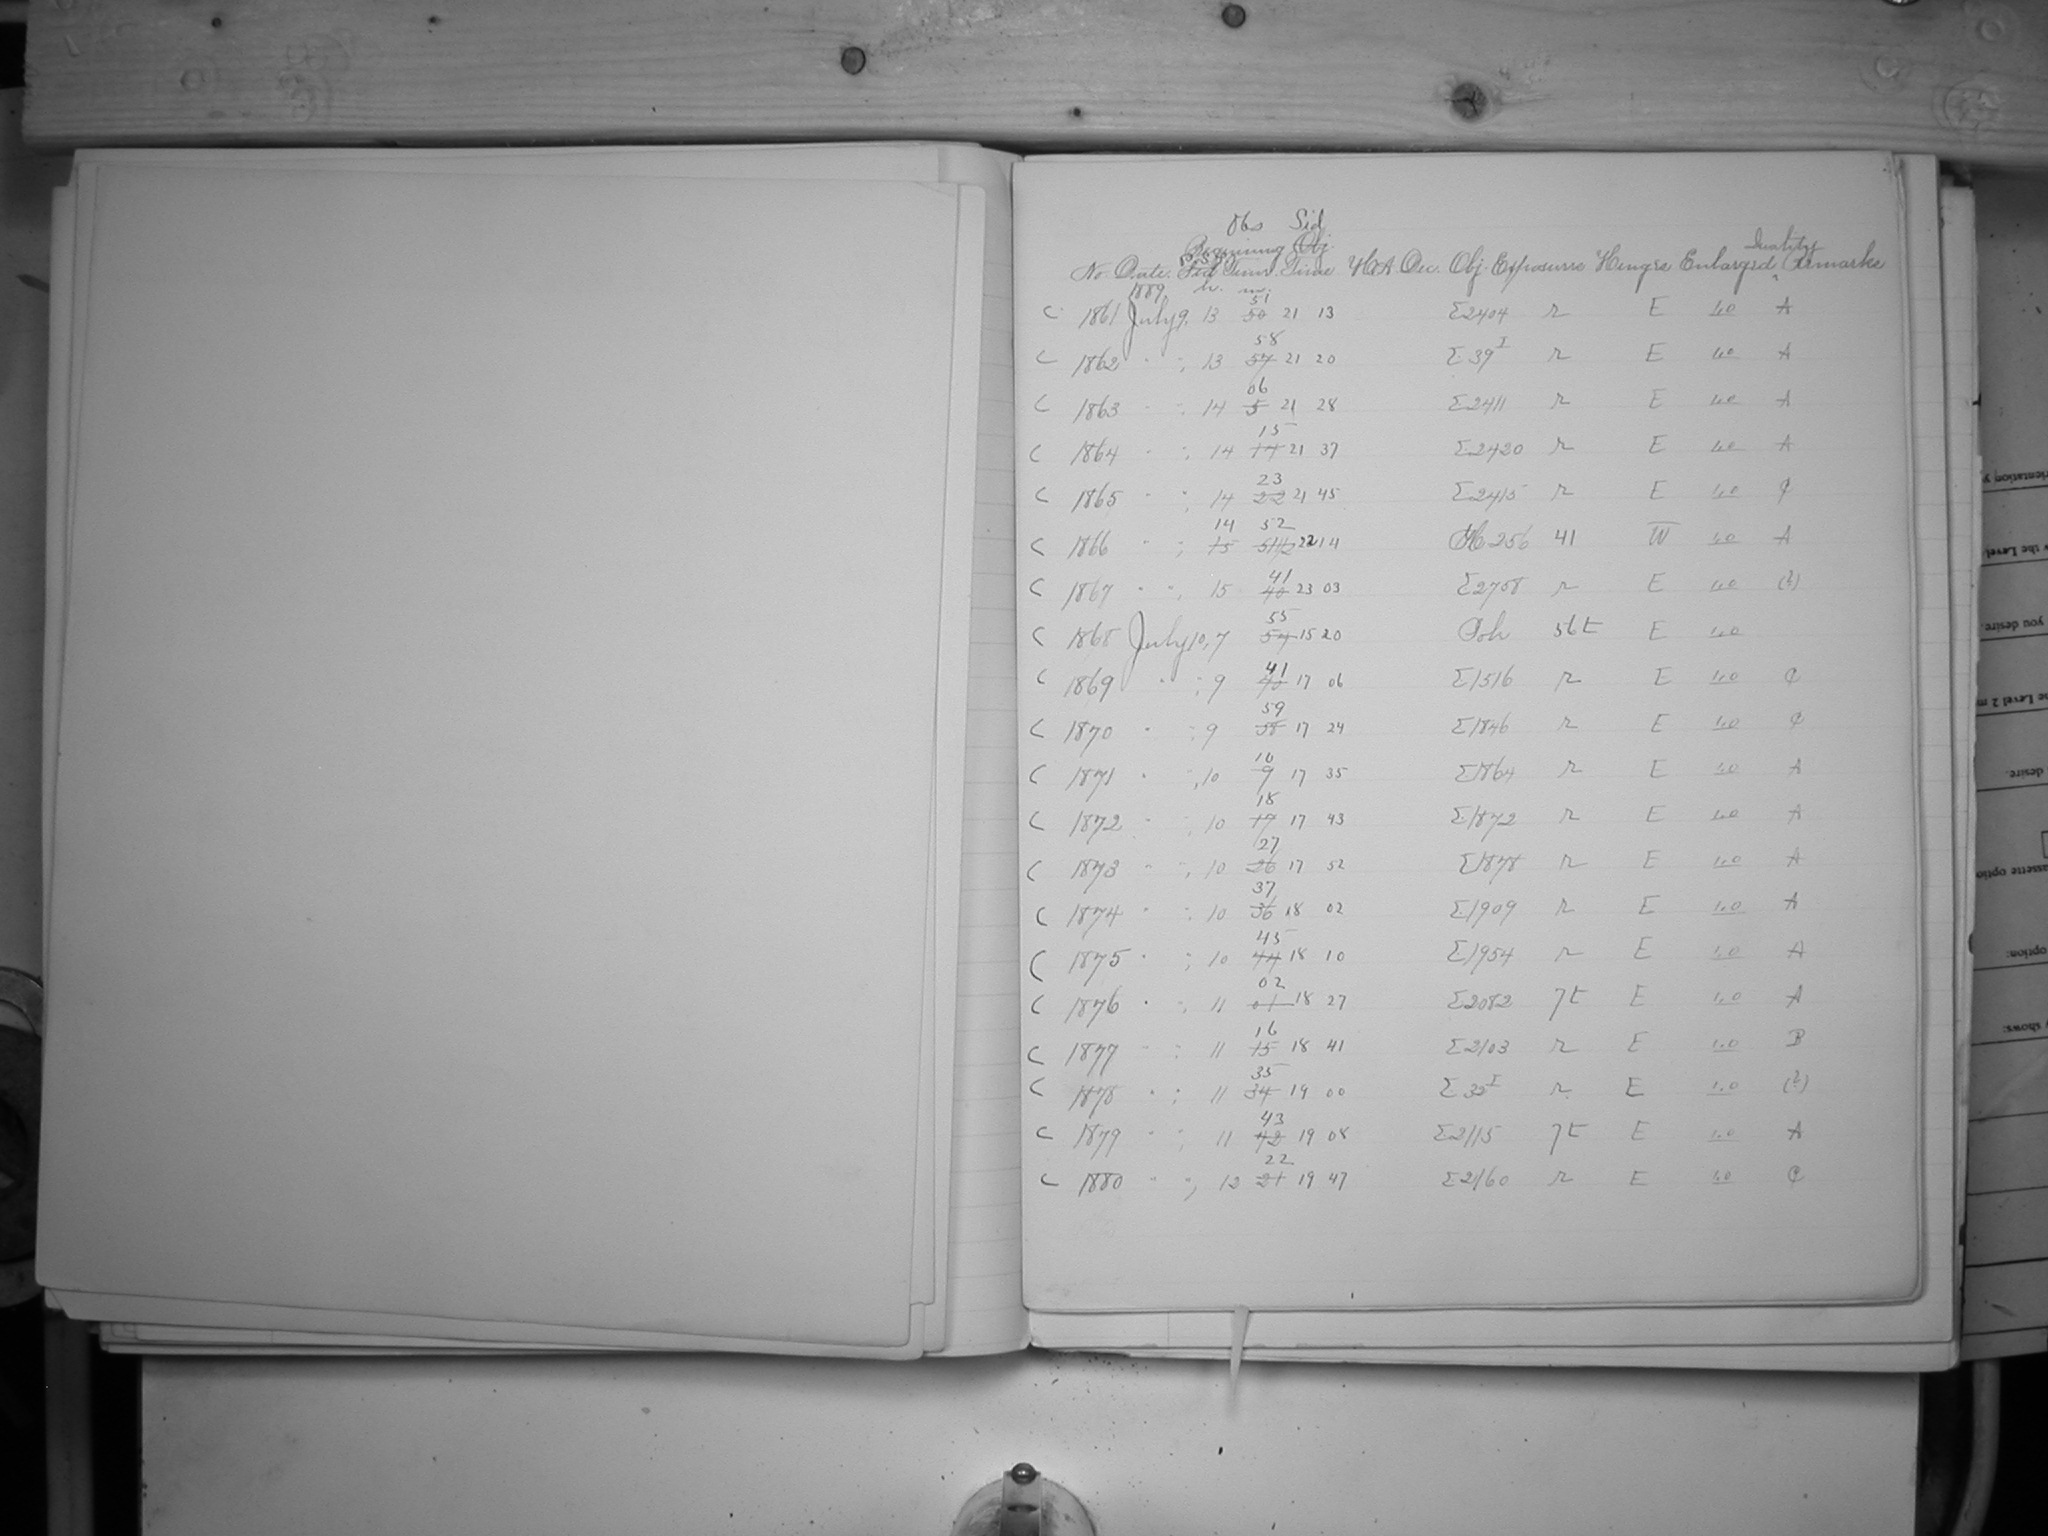 Obs Sid
Beginning Obj.
Quality
No. Date. Sid Time. Time H.A. Dec. Obj. Exposure Hinges Enlarged Remarks
1889 h. m.
51
C 1861 July 9, 13 50 21 13 Σ2404 r E 4.0 A
58
C 1862 " ", 13 57 21 20 Σ39I r E 4.0 A
06
C 1863 " ", 14 5 21 28 Σ2411 r E 4.0 A
15
C 1864 " ", 14 14 21 37 Σ2420 r E 4.0 A
23
C 1865 " ", 14 22 21 45 Σ2415 r E 4.0 C
14 52
C 1866 " ", 15 51 22 14 256 41 W 4.0 A
41
C 1867 " ", 15 40 23 03 Σ2708 r E 4.0 (?)
55
C 1868 July 10, 7 54 15 20 Pole 56t E 4.0
41
C 1869 " ", 9 40 17 06 Σ1516 r E 4.0 C
59
C 1870 " ", 9 58 17 24 Σ1846 r E 4.0 C
10
C 1871 " ", 10 9 17 35 Σ1864 r E 4.0 A
18
C 1872 " ", 10 17 17 43 Σ1872 r E 4.0 A
27
C 1873 " ", 10 26 17 52 Σ1878 r E 4.0 A
37
C 1874 " ", 10 36 18 02 Σ1909 r E 4.0 A
45
C 1875 " ", 10 44 18 10 Σ1954 r E 4.0 A
02
C 1876 " ", 11 01 18 27 Σ2082 7t E 4.0 A
16
C 1877 " ", 11 15 18 41 Σ2103 r E 4.0 B
35
C 1878 " ", 11 34 19 00 Σ35I r E 4.0 (?)
43
C 1879 " ", 11 42 19 08 Σ2115 7t E 4.0 A
22
C 1880 " ", 12 21 19 47 Σ2160 r E 4.0 C
you desire.
desire.
option:
shows: